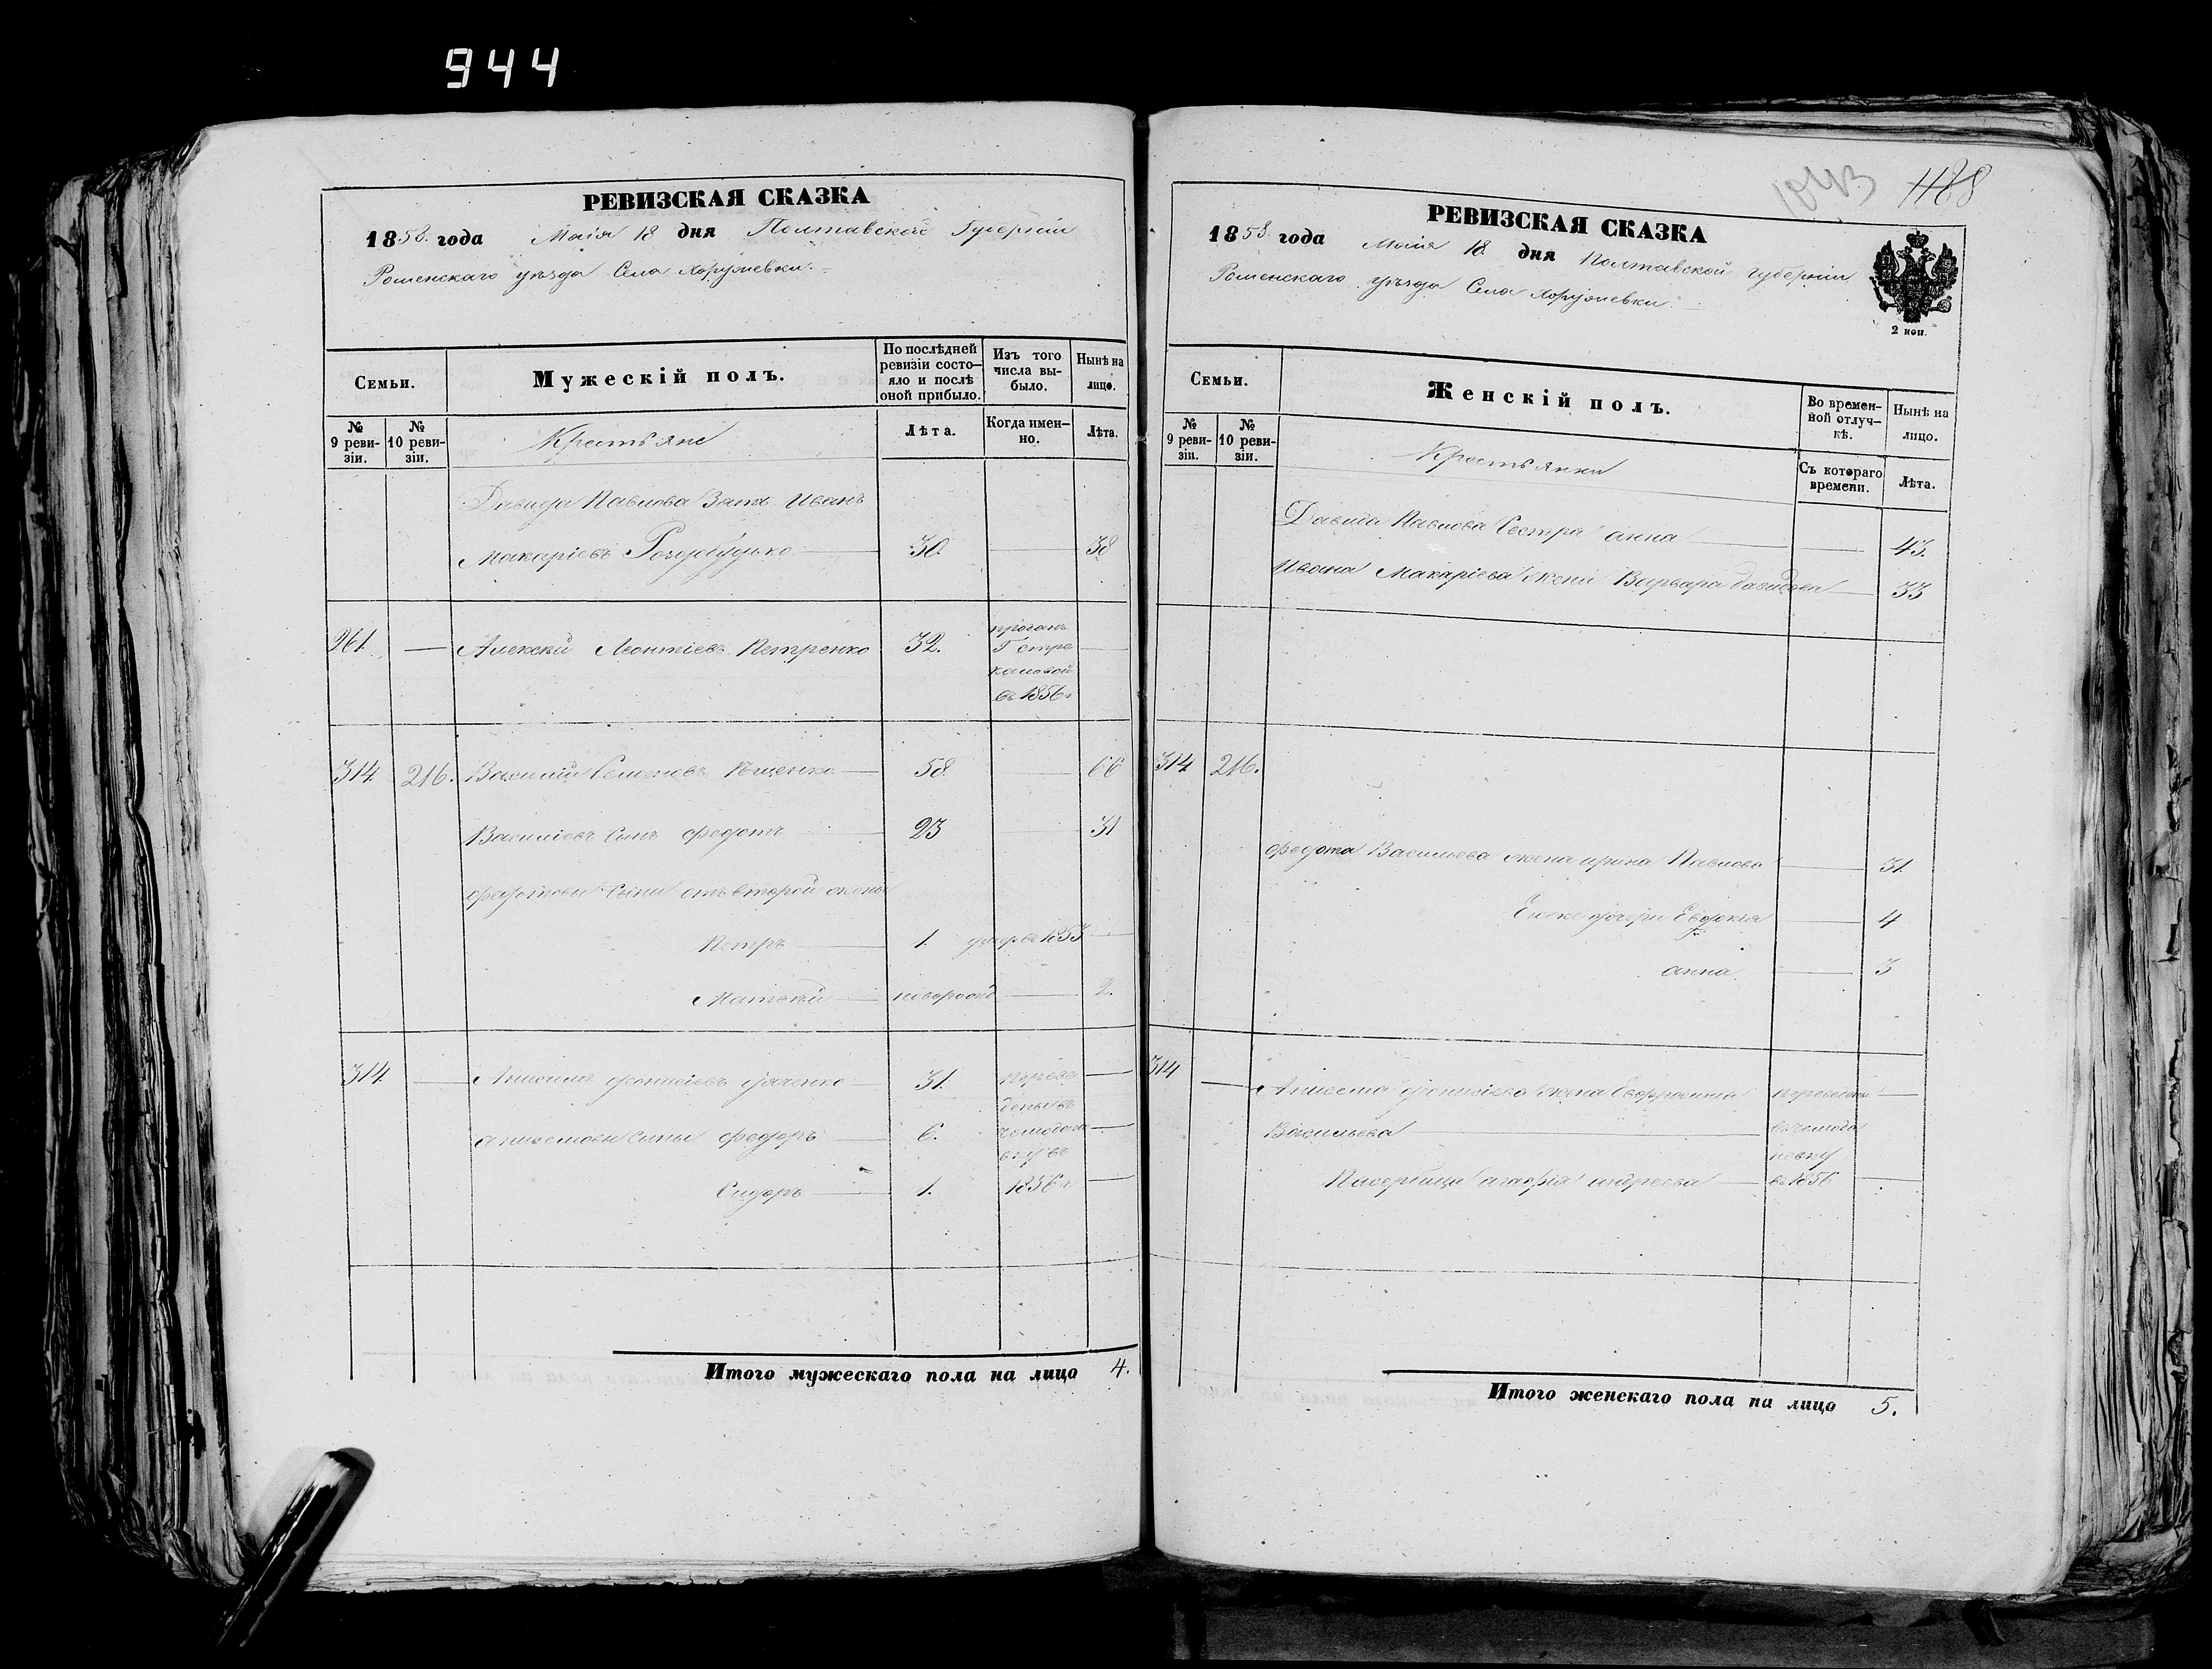 944
РЕВИЗСКАЯ СКАЗКА
1858 года Маія 18 дня Полтавской Губерніи
Роменскаго уѣзда Села Хоружевки.
Семьи.
Мужескій полъ.
По послѣдней ревизіи состояло и послѣ оной прибыло.
Изъ того числа выбыло.
Нынѣ на лицо.
№ 9 ревизіи.
№ 10 ревизіи.
Крестьяне
Лѣта.
Когда именно.
Лѣта.
Давида Павлова Зять Иванъ
Макаріевъ 30. 38
261. Алексѣй Леонтіевъ Петренко 32. проданъ
Г. Стре
каловой
въ 1856 г
314 216. Василій Семеновъ 58. 66
Василіевъ Сынъ Федотъ 23 31
Федотовы Сыны отъ второй жены
Петръ 1. умеръ 1853
Матвѣй новорожд 2.
314. 31. переве
дены въ
Анисимовы Сыны Федоръ 6.
вку въ
Сидоръ 1. 1856 г
Итого мужескаго пола на лицо 4.
1043 1188
РЕВИЗСКАЯ СКАЗКА
1858 года Маія 18 дня Полтавской Губерніи
Роменскаго уѣзда Села Хоружевки.
2 коп.
Семьи.
Женскій полъ.
Во временной отлучкѣ.
Нынѣ на лицо.
№ 9 ревизіи.
№ 10 ревизіи.
Крестьянки
Съ котораго времени.
Лѣта.
Давида Павлова Сестра Анна 43.
Ивана Макаріева жена Варвара Давидова 33
314 216.
Федота Васильева жена Ирина Павлова 31.
Ею же дочери Евдокія 4
Анна 3
314 жена Ефросинія переведены
Васильева
въ 1856
Итого женскаго пола на лицо 5.